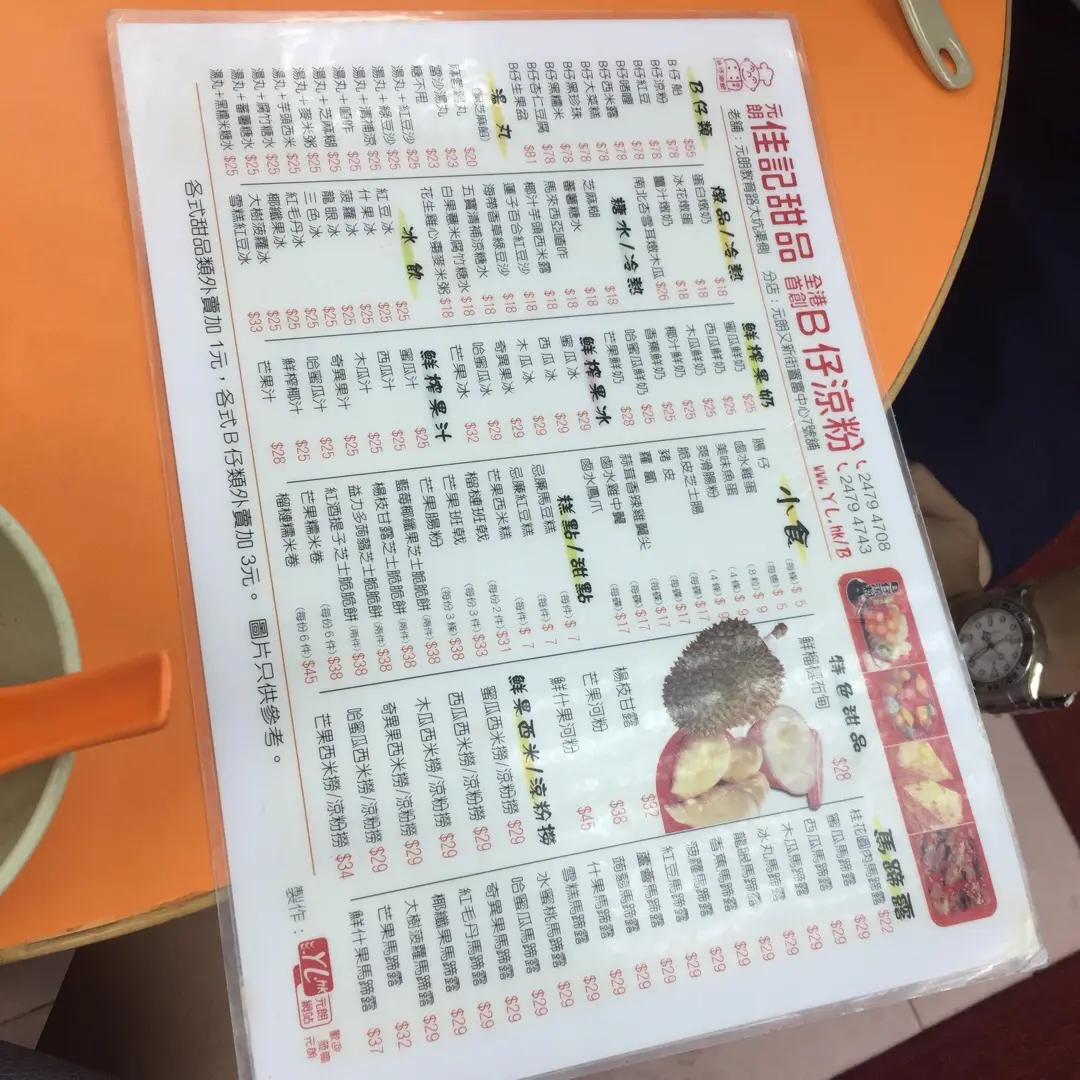 元朗 佳記甜品 全港首創 B仔涼粉 2479 4708
2479 4743
老舖：元朗教育路大坑渠側 分店：元朗又新街置富中心7號舖 www.YL.hk/B
B仔類
B仔船 $65
B仔涼粉 $78
B仔紅豆 $78
B仔啫喱 $78
B仔西米露 $78
B仔大菜糕 $78
B仔黑珍珠 $78
B仔黑糯米 $78
B仔杏仁豆腐 $78
B仔生果盆 $81
湯丸
$20
雷沙湯丸 $23
糖不甩 $23
湯丸+紅豆沙 $25
湯丸+綠豆沙 $25
湯丸+清補涼 $25
湯丸+喳咋 $25
湯丸+芝麻糊 $25
湯丸+麥米粥 $25
湯丸+芋頭西米 $25
湯丸+腐竹糖水 $25
湯丸+蕃薯糖水 $25
湯丸+黑糯米糖水 $25
燉品/冷熱
蛋白燉奶 $18
冰花燉蛋 $18
薑汁燉奶 $18
南北杏雪耳燉木瓜 $26
糖水/冷熱
芝麻糊 $18
蕃薯糖水 $18
馬來西亞喳咋 $18
椰汁芋頭西米露 $18
蓮子百合紅豆沙 $18
海帶香草綠豆沙 $18
五寶清補涼糖水 $18
白果薏米腐竹糖水 $18
花生雞心棗麥米粥 $18
冰飲
紅豆冰 $25
什果冰 $25
菠蘿冰 $25
龍眼冰 $25
三色冰 $25
紅毛丹冰 $25
椰纖果冰 $25
大樹菠蘿冰 $25
雪糕紅豆冰 $33
鮮榨果奶
蜜瓜鮮奶 $25
西瓜鮮奶 $25
木瓜鮮奶 $25
椰汁鮮奶 $25
香蕉鮮奶 $25
哈蜜瓜鮮奶 $25
芒果鮮奶 $28
鮮榨果冰
蜜瓜冰 $29
西瓜冰 $29
木瓜冰 $29
奇異果冰 $29
哈蜜瓜冰 $29
芒果冰 $32
鮮榨果汁
蜜瓜汁 $25
西瓜汁 $25
木瓜汁 $25
奇異果汁 $25
哈蜜瓜汁 $25
鮮榨椰汁 $25
芒果汁 $28
小食
腸仔 (每條) $5
鹵水雞蛋 (每隻) $5
美味魚蛋 (8粒) $9
爽滑腸粉 (4條) $9
脆皮芝士腸 (4條) $9
豬皮 (每碟) $17
蘿蔔 (每碟) $17
蒜茸香辣雞翼尖 (每碟) $17
鹵水雞中翼 (每碟) $17
鹵水鳳爪 (每碟) $17
糕點/甜點
忌廉馬豆糕 (每件) $7
忌廉紅豆糕 (每件) $7
芒果西米糕 (每件) $7
榴槤班戟 (每份2件) $31
芒果班戟 (每份3件) $33
芒果腸粉 (每份3條) $38
藍莓椰纖果芝士脆脆餅 (兩件) $38
楊枝甘露芝士脆脆餅 (兩件) $38
益力多蒟蒻芝士脆脆餅 (兩件) $38
紅酒提子芝士脆脆餅 (兩件) $38
芒果糯米卷 (每份6件) $38
榴槤糯米卷 (每份6件) $45
特色甜品
鮮榴槤布甸 $28
楊枝甘露 $32
芒果河粉 $38
鮮什果河粉 $45
鮮果西米/涼粉撈
蜜瓜西米撈/涼粉撈 $29
西瓜西米撈/涼粉撈 $29
木瓜西米撈/涼粉撈 $29
奇異果西米撈/涼粉撈 $29
哈蜜瓜西米撈/涼粉撈 $29
芒果西米撈/涼粉撈 $34
馬蹄露
桂花圓肉馬蹄露 $22
蜜瓜馬蹄露 $29
西瓜馬蹄露 $29
木瓜馬蹄露 $29
冰丸馬蹄露 $29
龍眼馬蹄露 $29
香蕉馬蹄露 $29
菠蘿馬蹄露 $29
紅豆馬蹄露 $29
蘆薈馬蹄露 $29
蒟蒻馬蹄露 $29
什果馬蹄露 $29
雪糕馬蹄露 $29
水蜜桃馬蹄露 $29
哈蜜瓜馬蹄露 $29
奇異果馬蹄露 $29
紅毛丹馬蹄露 $29
椰纖果馬蹄露 $29
大樹菠蘿馬蹄露 $29
芒果馬蹄露 $32
鮮什果馬蹄露 $37
各式甜品類外賣加1元，各式B仔類外賣加3元。 圖片只供參考。
製作：YL.hk 元朗網站